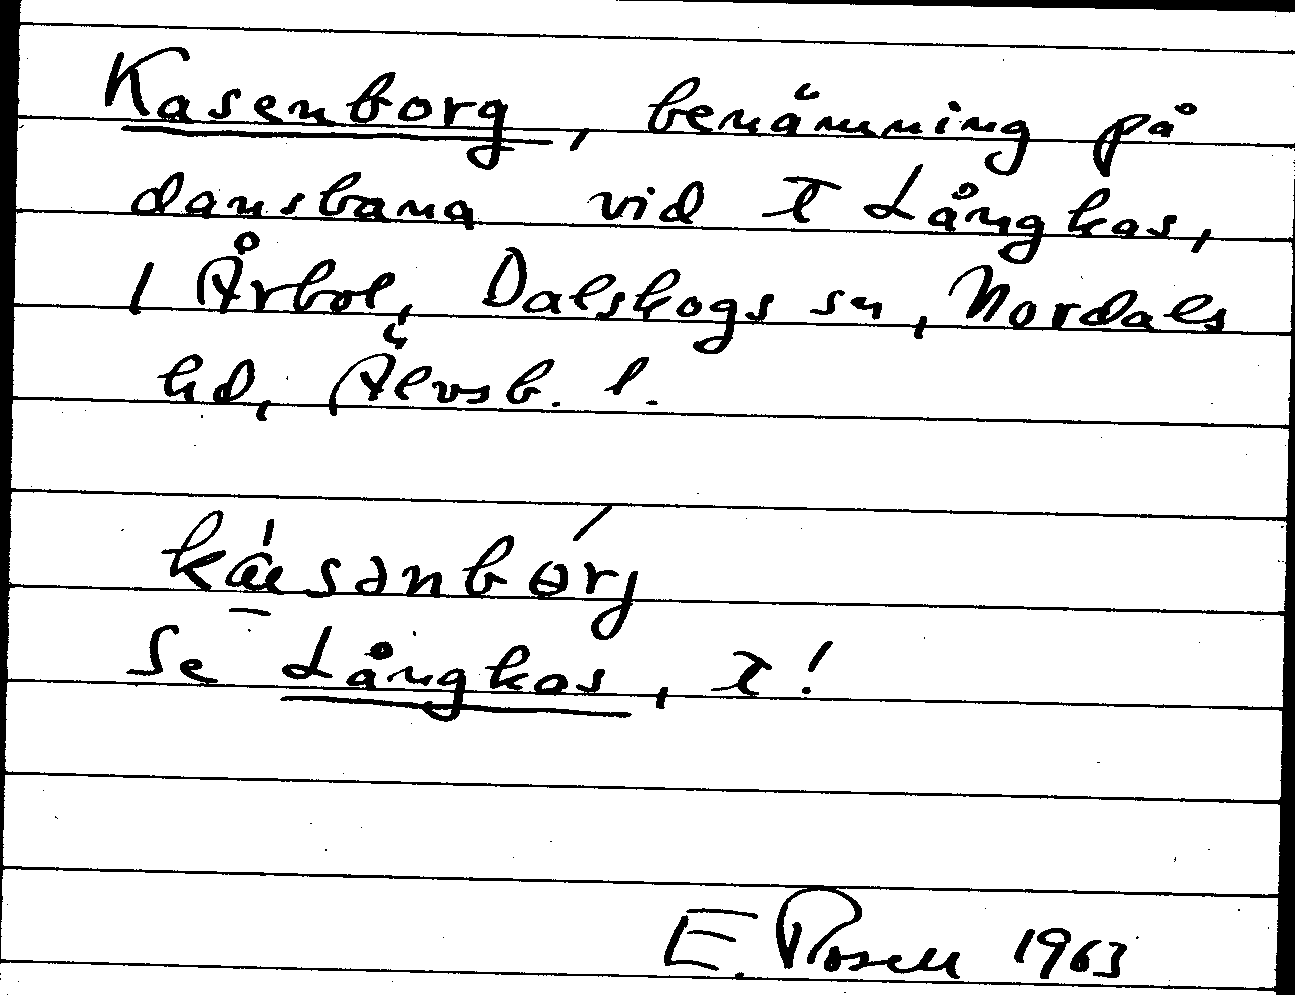 Kasenborg, benämning på
dansbana vid t Långkas,
1 Årbol, Dalskogs sn, Nordals
hd, Älvsb. l.
ká̱sənbɵ́rj
Se Långkas, t!
E. Rosell 1963